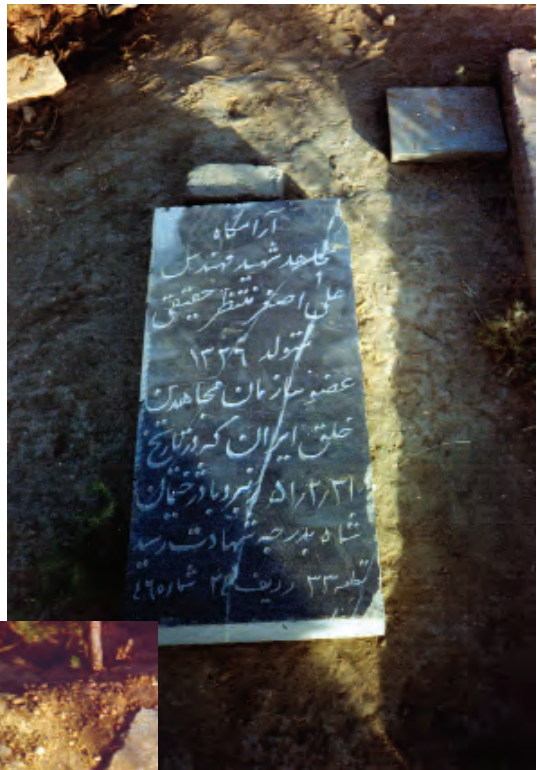 آرامگاه
مجاهد شهید مهندس
علی اصغر منتظر حقیقی
متولد ۱۳۲۶
عضو سازمان مجاهدین
خلق ایران که در تاریخ
۵۱٫۲٫۳۱ در نبرد با دژخیمان
شاه بدرجه شهادت رسید
قطعه ۳۳ ردیف ۲۴ شماره